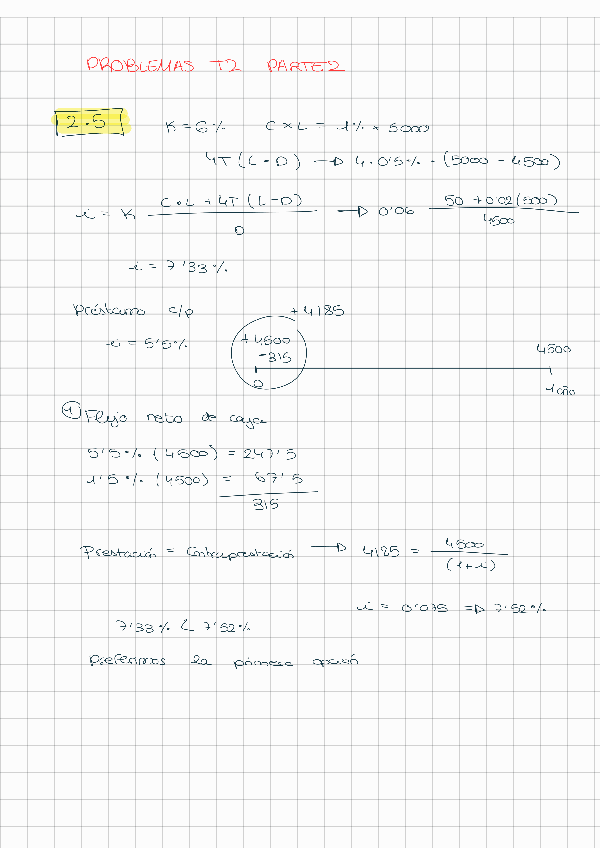 PROBLEMAS T2 PARTE 2
2.5 K = 6% C × L = 1% × 5000
4T (L - D) → 4 · 0'5% · (5000 - 4500)
i = K (C · L + 4T (L - D)) / D → 0'06 (50 + 0'02 (500)) / 4500
i = 7'33%
Préstamo c/p + 4185
i = 5'5% + 4500 4500
- 315
0 1 año
① Flujo neto de caja
5'5% (4500) = 247'5
1'5% (4500) = 67'5
315
Prestación = Contraprestación → 4185 = 4500 / (1+i)
i = 0'075 => 7'52%
7'33% < 7'52%
Preferimos la primera opción